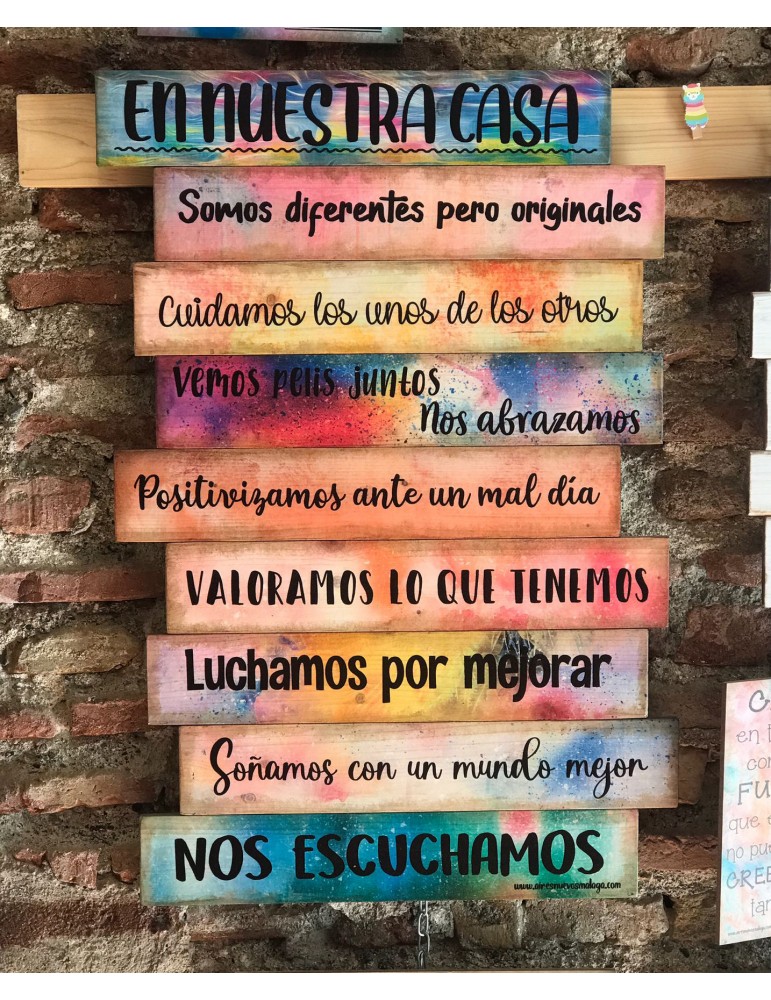 EN NUESTRA CASA
Somos diferentes pero originales
Cuidamos los unos de los otros
Vemos pelis juntos
Nos abrazamos
Positivizamos ante un mal día
VALORAMOS LO QUE TENEMOS
Luchamos por mejorar
Soñamos con un mundo mejor
NOS ESCUCHAMOS
www.airesnuevosmalaga.com
en
que